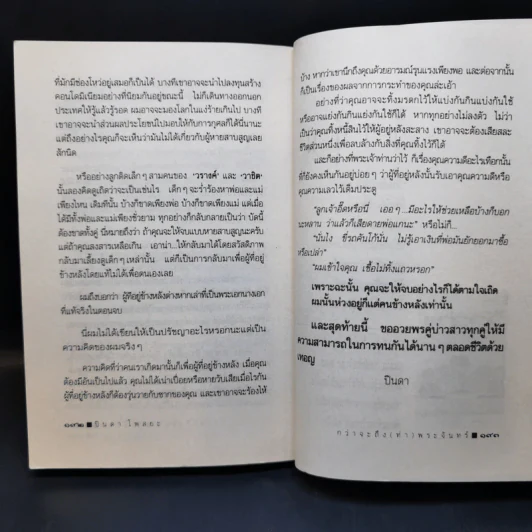 ที่มักมีช่องโหว่อยู่เสมอก็เป็นได้ บางทีเขาอาจจะนำไปลงทุนสร้าง
คอนโดมิเนียมอย่างที่นิยมกันอยู่ขณะนี้ ไม่ก็เดินทางออกนอก
ประเทศให้รู้แล้วรู้รอด ผมอาจจะมองโลกในแง่ร้ายเกินไป บางที
เขาอาจจะนำส่วนผลประโยชน์ไปมอบให้กับการกุศลก็ได้นี่นานะ
แต่ถึงอย่างไรคุณก็จะเห็นว่ามันไม่ได้เกี่ยวกับผู้ชายสาบสูญเลย
สักนิด
หรืออย่างลูกติดเล็ก ๆ สามคนของ 'วรางค์' และ 'วาธิต'
นั้นลองคิดดูเถิดว่าจะเป็นเช่นไร เด็ก ๆ จะร่ำร้องหาพ่อและแม่
เพียงไหน เดิมทีนั้น บ้างก็ขาดเพียงพ่อ บ้างก็ขาดเพียงแม่ แต่เมื่อ
ได้มีทั้งพ่อและแม่เพียงชั่วยาม ทุกอย่างก็กลับกลายเป็นว่า บัดนี้
ต้องขาดทั้งคู่ นี่หมายถึงว่า ถ้าคุณจะให้จบแบบหายสาบสูญนะครับ
แต่ถ้าคุณสงสารเหลือเกิน เอาน่า...ให้กลับมาได้โดยสวัสดิภาพ
กลับมาเลี้ยงดูเด็ก ๆ เหล่านั้น แต่ก็เป็นการกลับมาเพื่อผู้ที่อยู่
ข้างหลังโดยแท้ไม่ได้เพื่อตนเองเลย
ผมถึงบอกว่า ผู้ที่อยู่ข้างหลังต่างหากเล่าที่เป็นพระเอกนางเอก
ที่แท้จริงในตอนจบ
นี่ผมไม่ได้เขียนให้เป็นปรัชญาอะไรหรอกนะแต่เป็น
ความคิดของผมจริง ๆ
ความคิดที่ว่าคนเราเกิดมานั้นก็เพื่อผู้ที่อยู่ข้างหลัง เมื่อคุณ
ต้องมีอันเป็นไปแล้ว คุณไม่ได้เน่าเปื่อยหรือหายวับเสียเมื่อไรกัน
ผู้ที่อยู่ข้างหลังก็ต้องวุ่นวายกับซากของคุณ และเขาอาจจะร้องไห้
๑๙๒ ■ ปินดา โพสยะ
บ้าง หากว่าเขานึกถึงคุณด้วยอารมณ์รุนแรงเพียงพอ และต่อจากนั้น
ก็เป็นเรื่องของผลจากการกระทำของคุณล่ะเอ้า
อย่างที่ว่าคุณอาจจะทิ้งมรดกไว้ให้แบ่งกันกินแบ่งกันใช้
หรืออาจแย่งกันกินแย่งกันใช้ก็ได้ หากทุกอย่างไม่ลงตัว ไม่ว่า
เป็นว่าคุณทิ้งหนี้สินไว้ให้ผู้อยู่หลังสะสาง เขาอาจจะต้องเสียสละ
ชีวิตส่วนหนึ่งเพื่อลบล้างกับสิ่งที่คุณทิ้งไว้ก็ได้
และก็อย่างที่พระเจ้าท่านว่าไว้ ก็เรื่องคุณความดีอะไรเทือกนั้น
ที่ยังคงเห็นกันอยู่บ่อย ๆ ว่าผู้ที่อยู่หลังนั้นรับเอาคุณความดีหรือ
คุณความเลวไว้เต็มประตู
"ลูกเจ้าอี๊ดหรือนี่ เออ ๆ...มีอะไรให้ช่วยเหลือบ้างก็บอก
นะหลาน ว่าแล้วก็เสียดายพ่อแกนะ" หรือไม่ก็...
"นั่นไง ขี่รถคันโก้นั่น ไม่รู้เอาเงินที่พ่อมันยักยอกมาซื้อ
หรือเปล่า"
"ผมเข้าใจคุณ เชื้อไม่ทิ้งแถวหรอก"
เพราะฉะนั้น คุณจะให้จบอย่างไรก็ได้ตามใจเถิด
ผมนั้นห่วงอยู่ก็แต่คนข้างหลังเท่านั้น
และสุดท้ายนี้ ขออวยพรคู่บ่าวสาวทุกคู่ให้มี
ความสามารถในการทนกันได้นาน ๆ ตลอดชีวิตด้วย
เทอญ
ปินดา
กว่าจะถึง(ท่า)พระจันทร์ ■ ๑๙๓